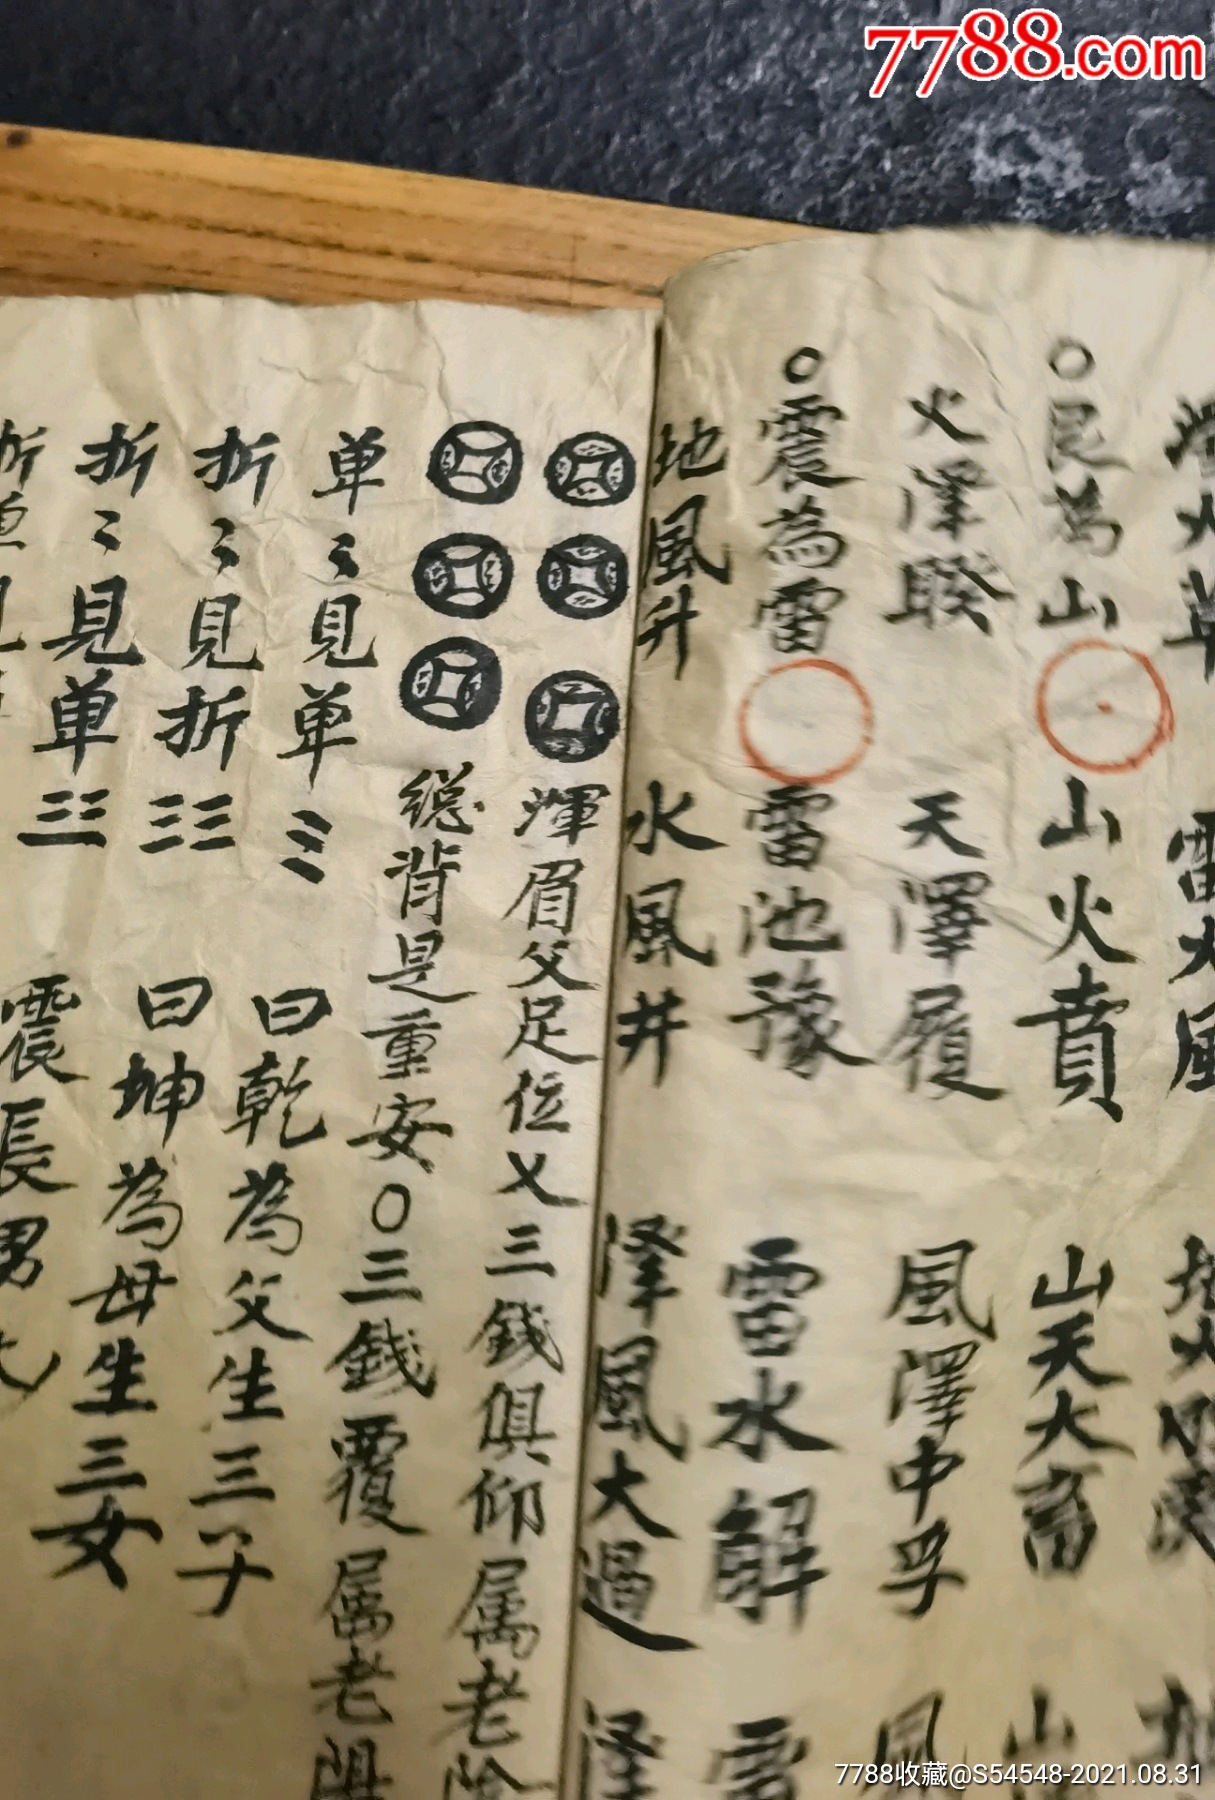 7788.com
○艮為山 山火賁 山天大畜 山
火澤睽 天澤履 風澤中孚 風
○震為雷 雷池豫 雷水解 雷
地風升 水風井 澤風大過 澤
渾眉父足位乂三錢俱仰属老陰
總背是重安○三錢覆属老
单〻見单 曰乾為父生三子
折〻見折 曰坤為母生三女
折〻見单 震長男
7788收藏@S54548-2021.08.31